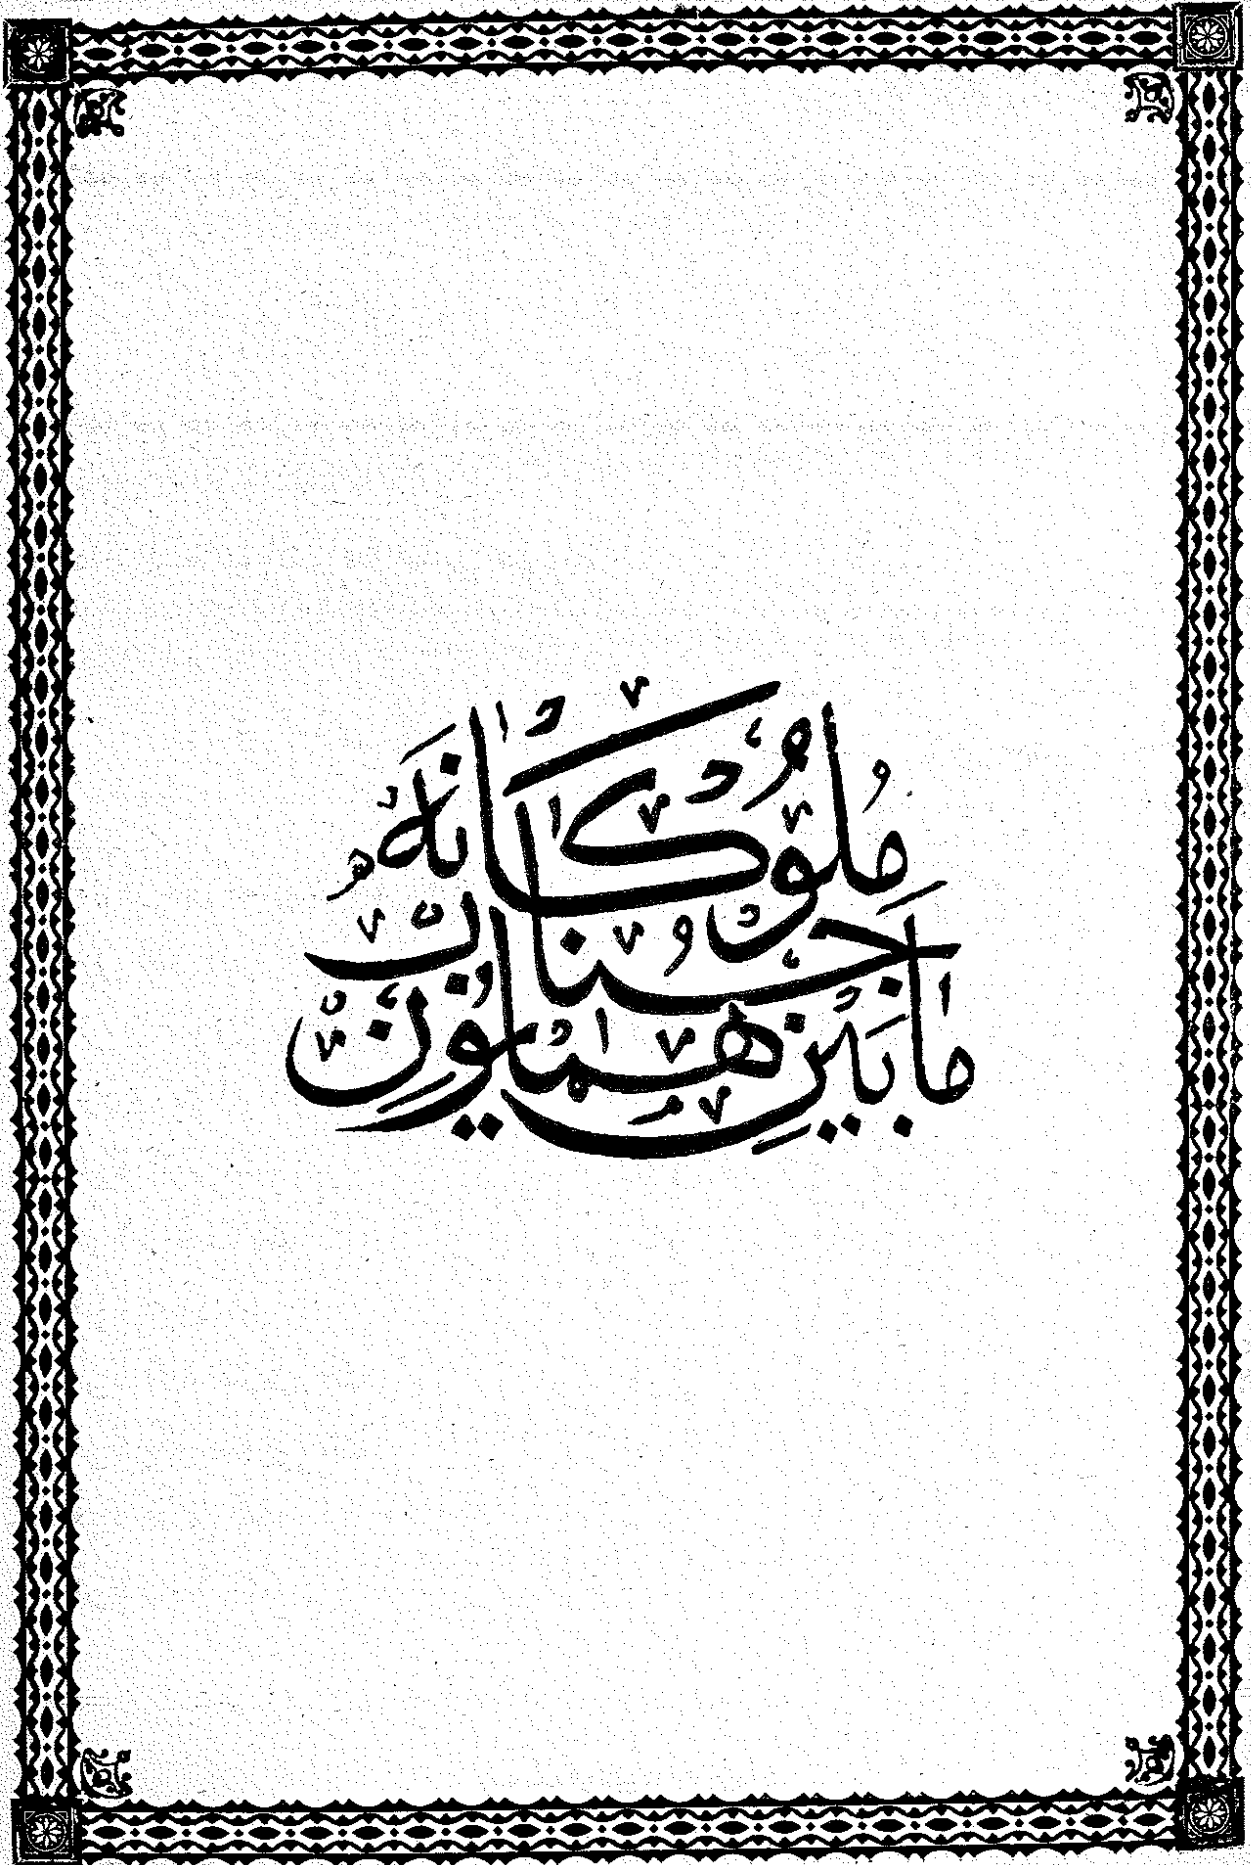 مابين همايون
جناب
ملوكانه